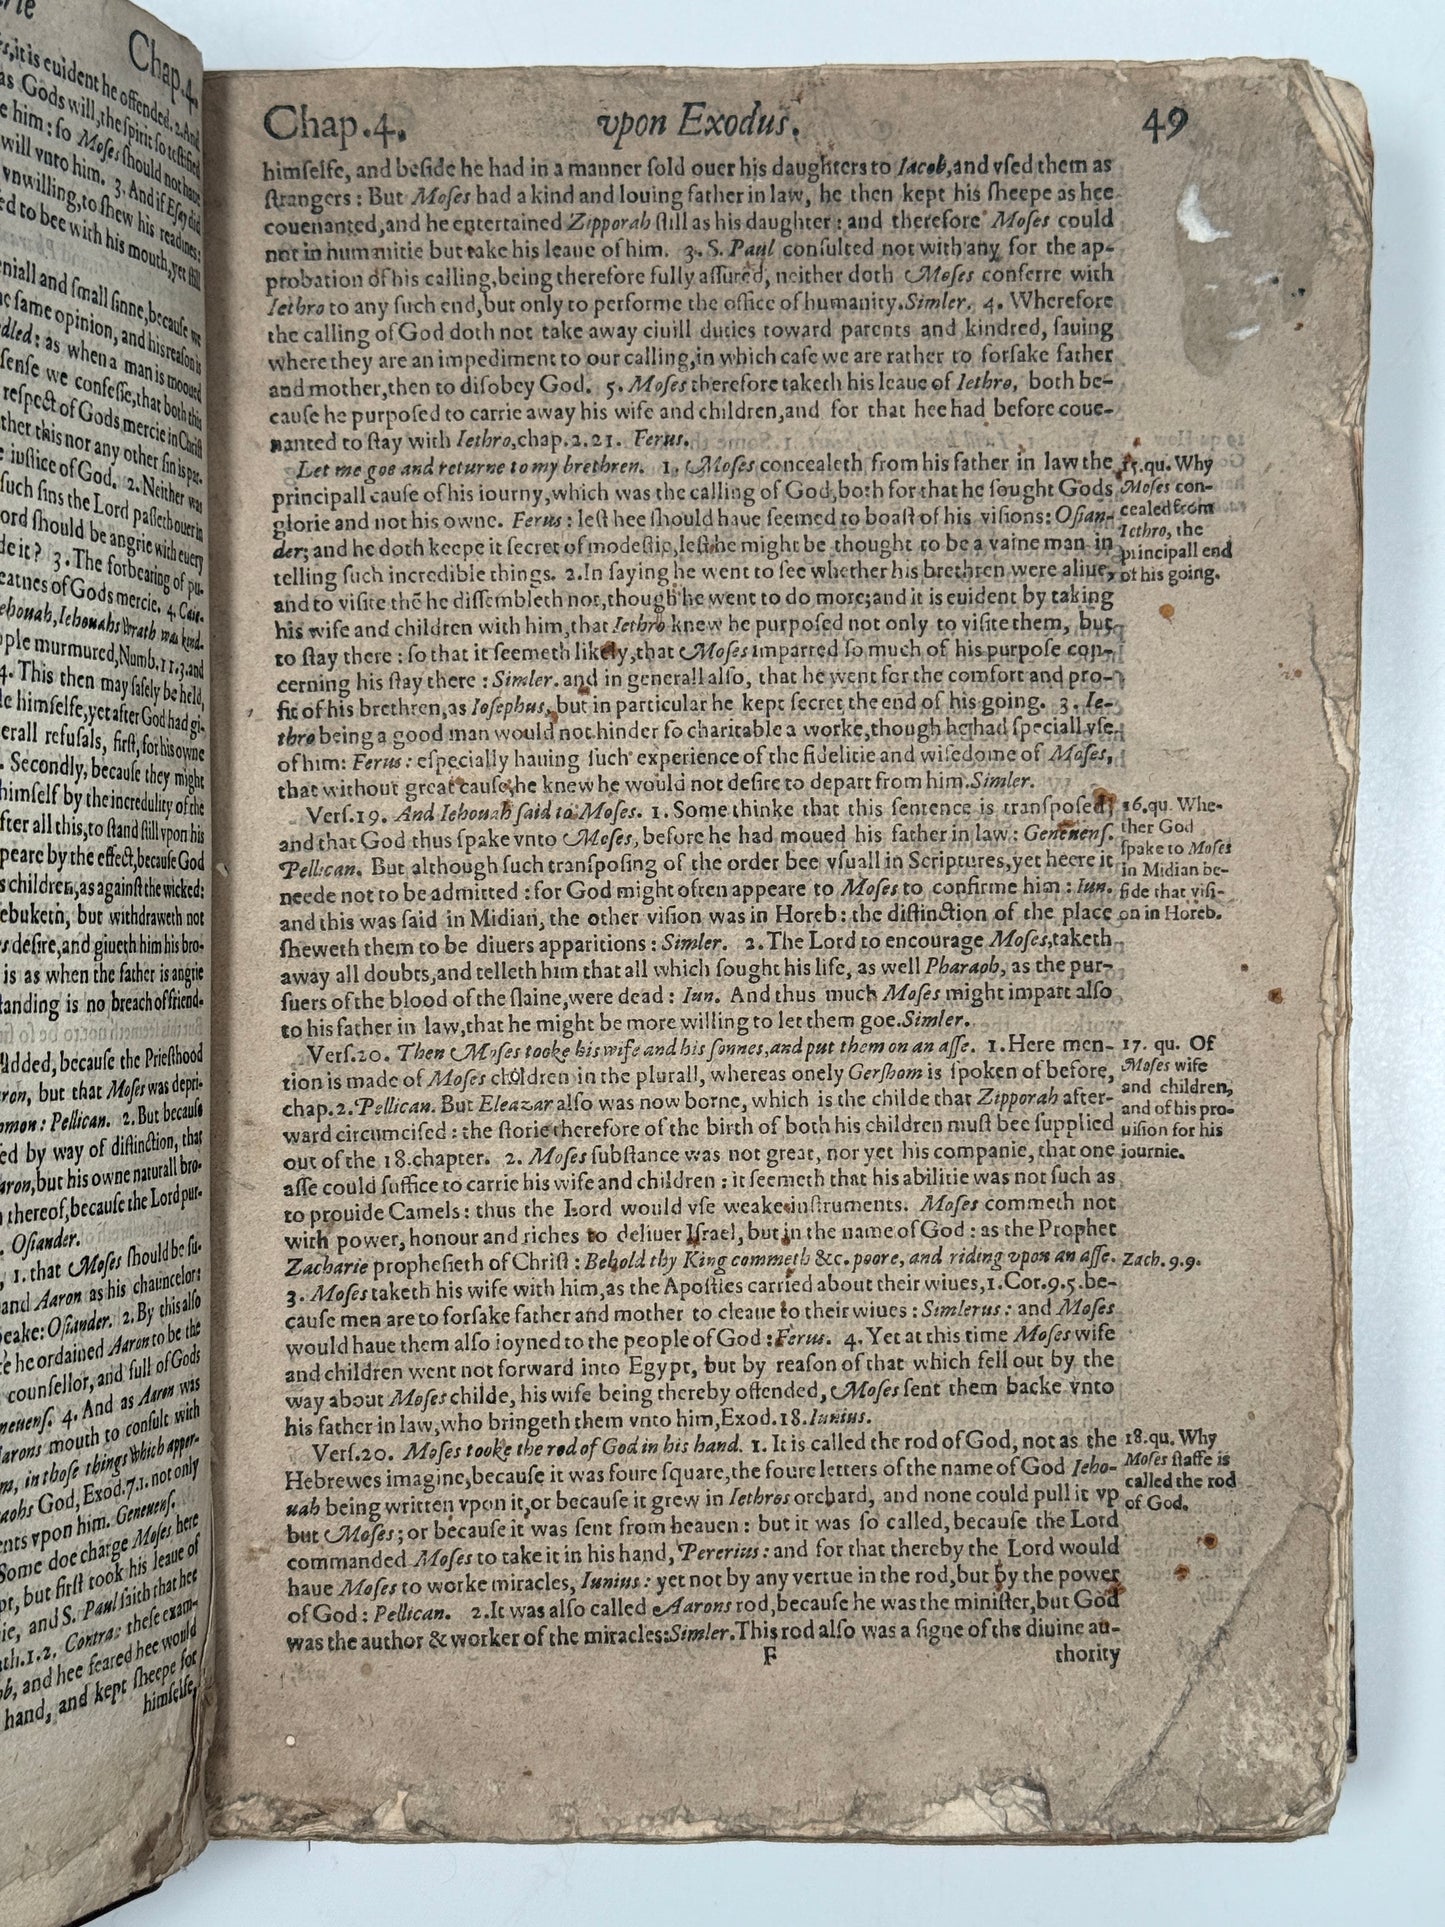 Chap.4.
s,it is euident he offended. 2. And
as Gods will,the spirit so testified
e him : so Moses should not haue
will vnto him. 3. And if Esay did
vnwilling,to shew his readines:
ed to bee with his mouth,yet still
eniall and small sinne,because we
e same opinion, and his reason is
dled : as when a man is mooued
sense we confesse,that both this
respect of Gods mercie in Christ
ther this nor any other sin is par-
e iustice of God. 2. Neither was
such sins the Lord passeth ouer in
ord should be angrie with euery
de it ? 3. The forbearing of pu-
eatnes of Gods mercie. 4. Caie-
ehouah, Iehouahs wrath was kind-
ople murmured,Numb.11.3.and
4. This then may safely be held,
le himselfe,yet after God had gi-
erall refusals, first, for his owne
. Secondly, because they might
himself by the incredulity of the
fter all this,to stand still vpon his
peare by the effect,because God
s children,as against the wicked:
ebuketh, but withdraweth not
s desire,and giueth him his bro-
is as when the father is angrie
tanding is no breach of friend-
Added, because the Priesthood
aron, but that Moses was depri-
mon: Pellican. 2. But because
ed by way of distinction, that
aron,but his owne naturall bro-
thereof,because the Lord pur-
. Osiander.
, 1. that Moses should be su-
and Aaron as his chauncelor:
peake: Osiander. 2. By this also
e he ordained Aaron to be the
counsellor, and full of Gods
neuens. 4. And as Aaron was
Aarons mouth to consult with
m, in those things which apper-
aohs God, Exod.7.1. not only
ents vpon him. Geneuens.
Some doe charge Moses here
pt, but first took his leaue of
ie, and S. Paul saith that hee
ath.1.2. Contra: these exam-
ob, and hee feared hee would
hand, and kept sheepe for
himselfe,
Chap.4. vpon Exodus. 49
himselfe, and beside he had in a manner sold ouer his daughters to Iacob,and vsed them as
strangers : But Moses had a kind and louing father in law, he then kept his sheepe as hee
couenanted,and he entertained Zipporah still as his daughter : and therefore Moses could
not in humanitie but take his leaue of him. 3. S. Paul consulted not with any for the ap-
probation of his calling,being therefore fully assured, neither doth Moses conferre with
Iethro to any such end,but only to performe the office of humanity.Simler. 4. Wherefore
the calling of God doth not take away ciuill duties toward parents and kindred, sauing
where they are an impediment to our calling,in which case we are rather to forsake father
and mother,then to disobey God. 5. Moses therefore taketh his leaue of Iethro, both be-
cause he purposed to carrie away his wife and children,and for that hee had before coue-
nanted to stay with Iethro,chap.2.21. Ferus.
Let me goe and returne to my brethren. 1. Moses concealeth from his father in law the
principall cause of his iourny,which was the calling of God,both for that he sought Gods
glorie and not his owne. Ferus : lest hee should haue seemed to boast of his visions: Osian-
der; and he doth keepe it secret of modestie,lest he might be thought to be a vaine man in
telling such incredible things. 2.In saying he went to see whether his brethren were aliue,
and to visite thẽ he dissembleth not,though he went to do more;and it is euident by taking
his wife and children with him,that Iethro knew he purposed not only to visite them, but
to stay there : so that it seemeth likely,that Moses imparted so much of his purpose con-
cerning his stay there : Simler. and in generall also, that he went for the comfort and pro-
fit of his brethren,as Iosephus, but in particular he kept secret the end of his going. 3. Ie-
thro being a good man would not hinder so charitable a worke,though he had speciall vse
of him: Ferus : especially hauing such experience of the fidelitie and wisedome of Moses,
that without great cause,he knew he would not desire to depart from him.Simler.
15.qu. Why
Moses con-
cealed from
Iethro, the
principall end
of his going.
Vers.19. And Iehouah said to Moses. 1. Some thinke that this sentence is transposed,
and that God thus spake vnto Moses, before he had moued his father in law : Geneuens.
Pellican. But although such transposing of the order bee vsuall in Scriptures,yet heere it
neede not to be admitted : for God might often appeare to Moses to confirme him : Iun.
and this was said in Midian, the other vision was in Horeb : the distinction of the place
sheweth them to be diuers apparitions : Simler. 2. The Lord to encourage Moses,taketh
away all doubts,and telleth him that all which sought his life, as well Pharaoh, as the pur-
suers of the blood of the slaine,were dead : Iun. And thus much Moses might impart also
to his father in law,that he might be more willing to let them goe.Simler.
16.qu. Whe-
ther God
spake to Moses
in Midian be-
side that visi-
on in Horeb.
Vers.20. Then Moses tooke his wife and his sonnes,and put them on an asse. 1.Here men-
tion is made of Moses children in the plurall, whereas onely Gershom is spoken of before,
chap.2.Pellican. But Eleazar also was now borne, which is the childe that Zipporah after-
ward circumcised : the storie therefore of the birth of both his children must bee supplied
out of the 18.chapter. 2. Moses substance was not great, nor yet his companie, that one
asse could suffice to carrie his wife and children : it seemeth that his abilitie was not such as
to prouide Camels : thus the Lord would vse weake instruments. Moses commeth not
with power, honour and riches to deliuer Israel, but in the name of God : as the Prophet
Zacharie prophesieth of Christ : Behold thy King commeth &c. poore, and riding vpon an asse.
3. Moses taketh his wife with him,as the Apostles carried about their wiues,1.Cor.9.5.be-
cause men are to forsake father and mother to cleaue to their wiues : Simlerus : and Moses
would haue them also ioyned to the people of God : Ferus. 4. Yet at this time Moses wife
and children went not forward into Egypt, but by reason of that which fell out by the
way about Moses childe, his wife being thereby offended, Moses sent them backe vnto
his father in law,who bringeth them vnto him,Exod.18.Iunius.
17. qu. Of
Moses wife
and children,
and of his pro-
uision for his
iournie.
Zach.9.9.
Vers.20. Moses tooke the rod of God in his hand. 1. It is called the rod of God, not as the
Hebrewes imagine,because it was foure square,the foure letters of the name of God Ieho-
uah being written vpon it,or because it grew in Iethros orchard, and none could pull it vp
but Moses ; or because it was sent from heauen : but it was so called, because the Lord
commanded Moses to take it in his hand, Pererius : and for that thereby the Lord would
haue Moses to worke miracles, Iunius : yet not by any vertue in the rod,but by the power
of God : Pellican. 2.It was also called Aarons rod,because he was the minister,but God
was the author & worker of the miracles:Simler.This rod also was a signe of the diuine au-
18.qu. Why
Moses staffe is
called the rod
of God.
F thority